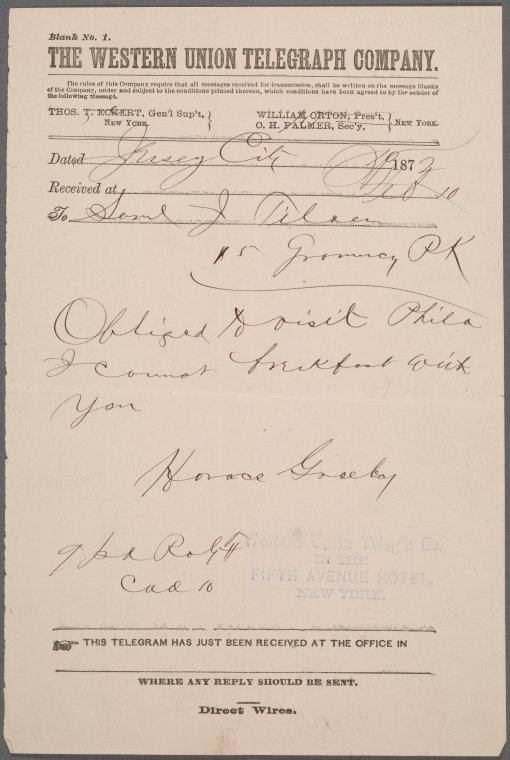 Blank No. 1.
THE WESTERN UNION TELEGRAPH COMPANY.
The rules of this Company require that all messages received for transmission, shall be written on the message blanks
of the Company, under and subject to the conditions printed thereon, which conditions have been agreed to by the sender of
the following message.
THOS. T. ECKERT, Gen'l Sup't, } NEW YORK. WILLIAM ORTON, Pres't, O. H. PALMER, Sec'y, } NEW YORK.
Dated Jersey City 187
Received at
To Saml J Tilden
15 Gramercy PK
Obliged to visit Phila
I cannot breakfast with
you
Horace Greeley
9 pd
10
Western Union Teleg'h Co.
IN THE
FIFTH AVENUE HOTEL,
NEW YORK.
THIS TELEGRAM HAS JUST BEEN RECEIVED AT THE OFFICE IN
WHERE ANY REPLY SHOULD BE SENT.
Direct Wires.